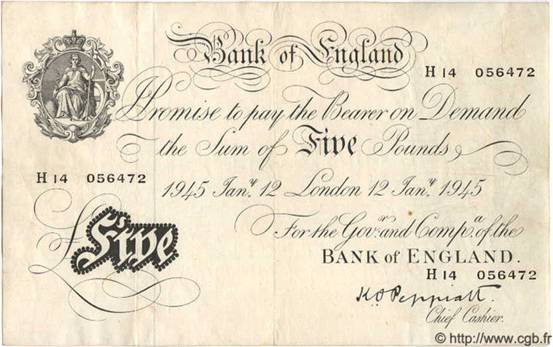 Bank of England
H 14 056472
I Promise to pay the Bearer on Demand
the Sum of Five Pounds
H 14 056472
1945 Jan.y 12 London 12 Jan.y 1945
For the Gov.r and Comp.a of the
BANK of ENGLAND.
£ Five
H 14 056472
K O Peppiatt.
Chief Cashier.
© http://www.cgb.fr